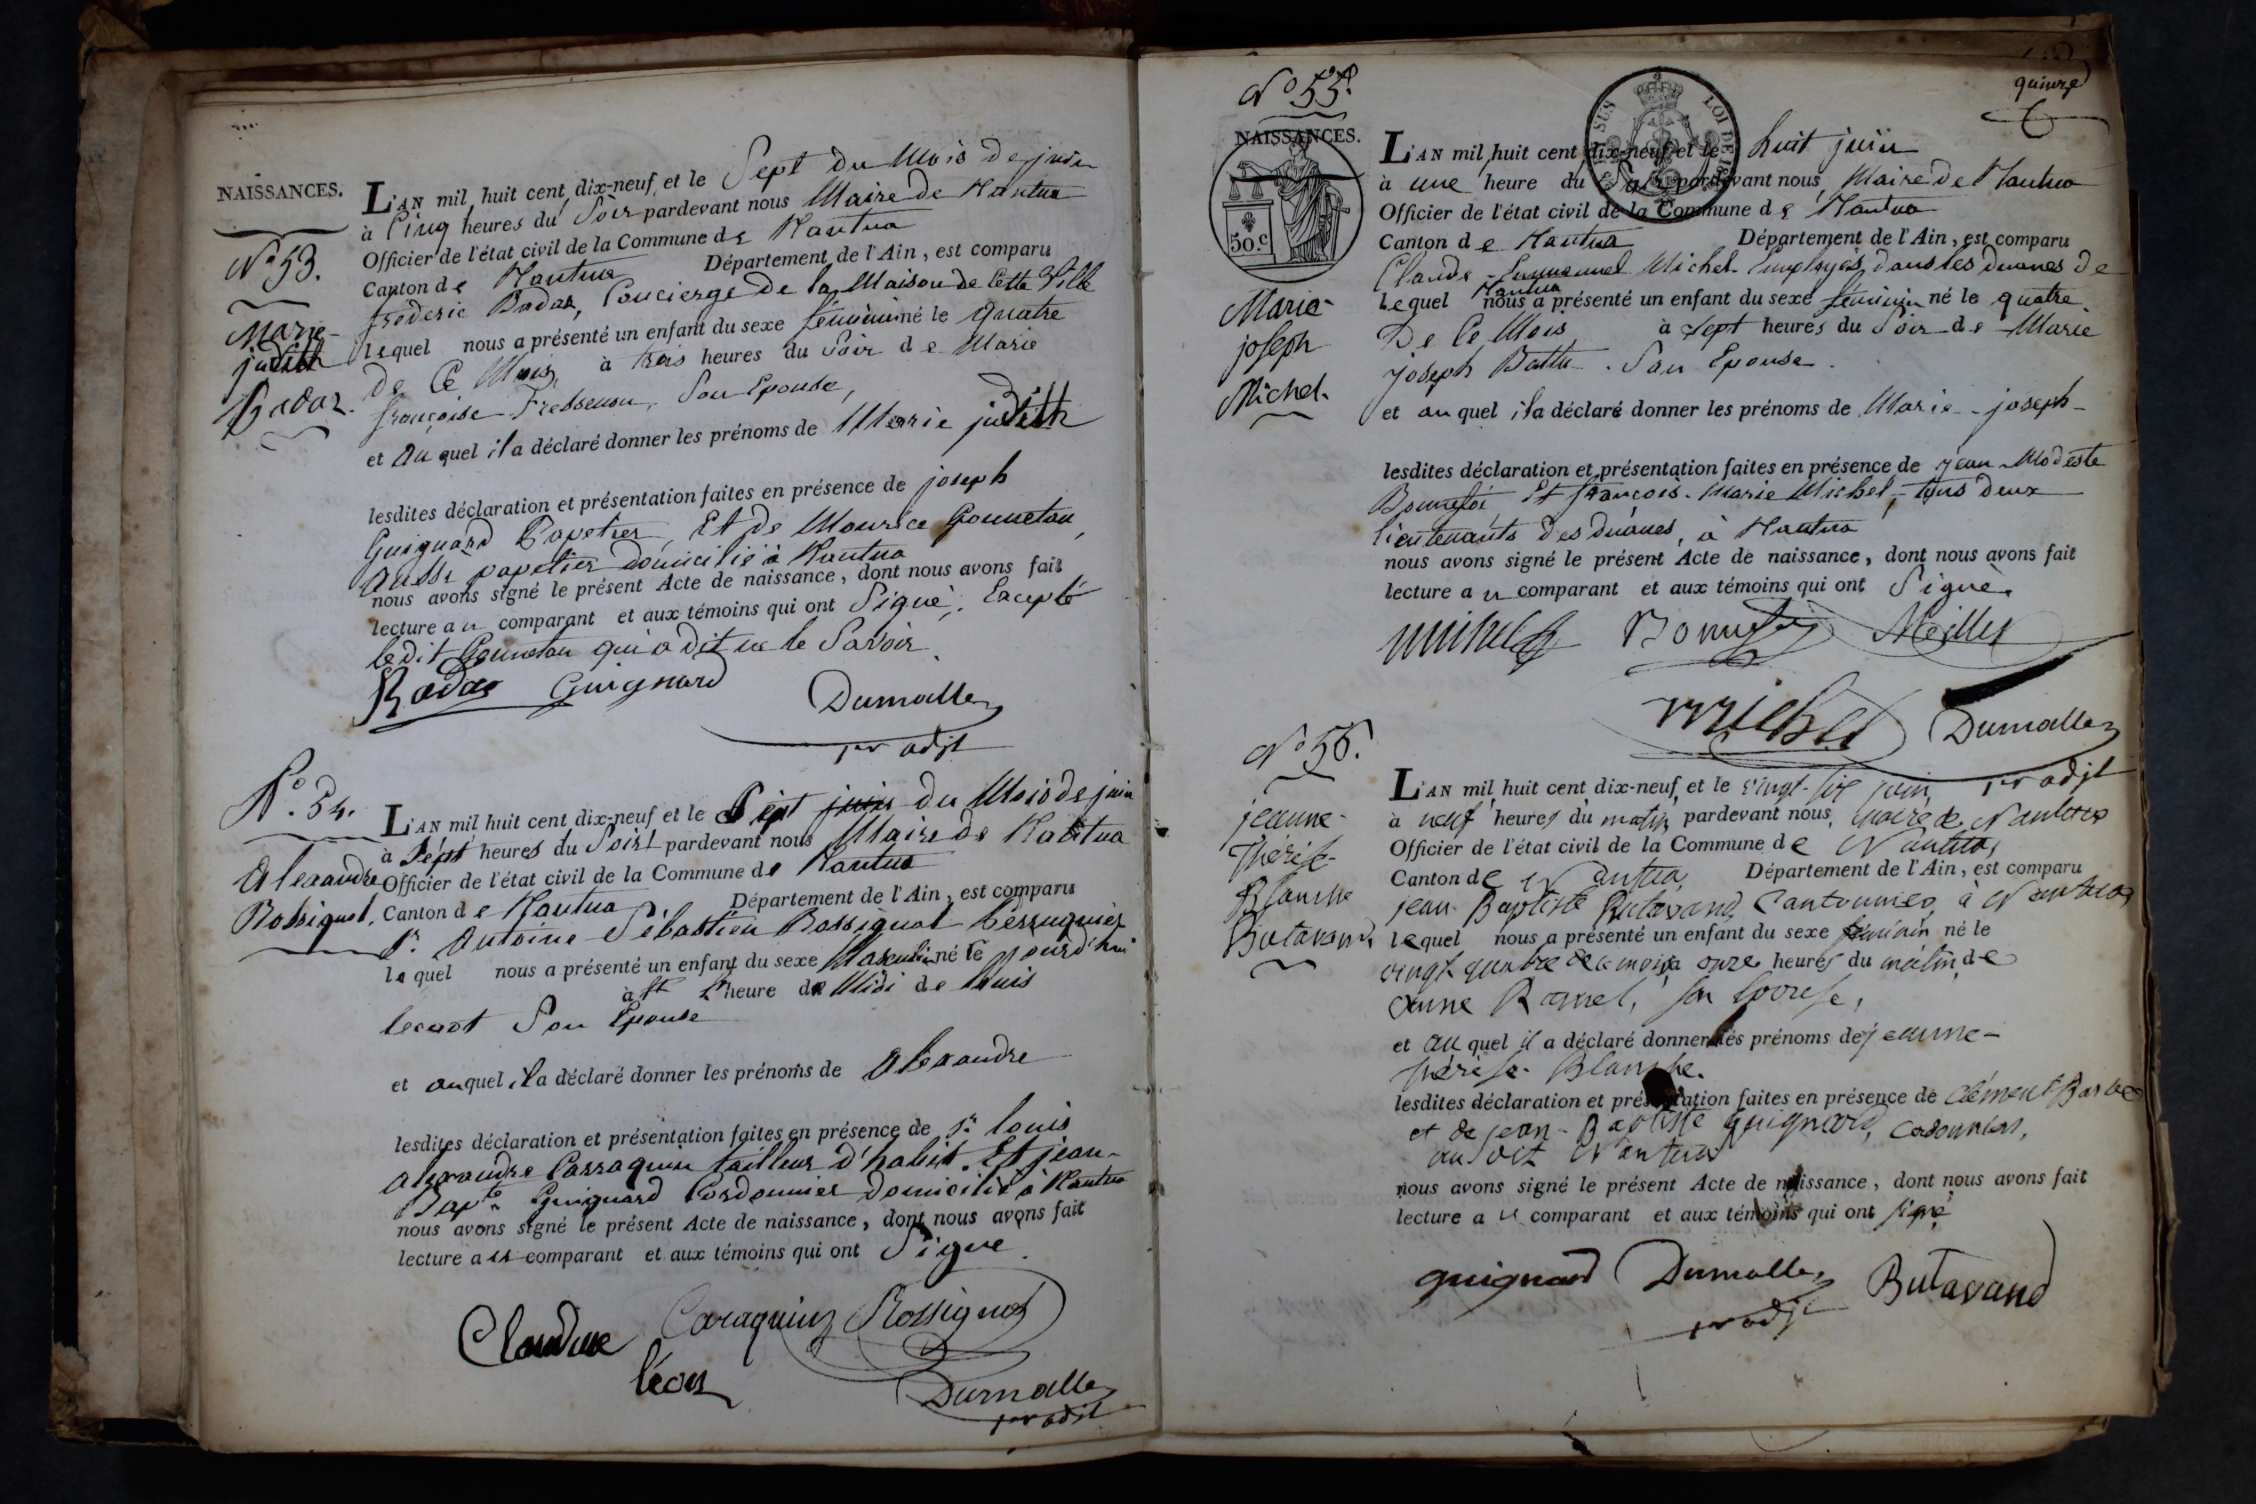 NAISSANCES.
N° 53.
Marie-
judith
Badar.
L'AN mil huit cent dix-neuf et le Sept du Mois de juin
à Cinq heures du Soir pardevant nous Maire de Nantua
Officier de l'état civil de la Commune de Nantua
Canton de Nantua Département de l'Ain, est comparu
frederic Badar, Concierge de la Maison de Cette Ville
lequel nous a présenté un enfant du sexe féminin né le quatre
de Ce Mois à trois heures du Soir de Marie
françoise Son Epouse,
et Au quel il a déclaré donner les prénoms de Marie judith
lesdites déclaration et présentation faites en présence de joseph
Guignard Papetier, Et de Maurice Gonneton,
Aussi papetier domicilié à Nantua
nous avons signé le présent Acte de naissance, dont nous avons fait
lecture au comparant et aux témoins qui ont Signé, Excepté
ledit Gonneton qui a dit ne le Savoir.
Badar Guignard
Dumolle
1er adjt
N° 54.
Alexandre
Rossignol.
L'AN mil huit cent dix-neuf et le Sept juin du Mois de juin
à Sept heures du Soir pardevant nous Maire de Nantua
Officier de l'état civil de la Commune de Nantua
Canton de Nantua Département de l'Ain, est comparu
Sr. Antoine Sébastien Rossignol Perruquier
lequel nous a présenté un enfant du sexe Masculin né le jourd'hui
à heure de Midi de louis
Son Epouse
et auquel il a déclaré donner les prénoms de Alexandre
lesdites déclaration et présentation faites en présence de Sr. louis
alexandre Carraquin tailleur d'habit. Et jean-
Bapte. Guignard Cordonnier domicilié à Nantua
nous avons signé le présent Acte de naissance, dont nous avons fait
lecture au comparant et aux témoins qui ont Signé.
Caraquin Rossignol
léon
Dumolle
1er adjt
quinze
N° 55.
NAISSANCES.
50.c
Marie-
joseph
Michel.
L'AN mil huit cent dix-neuf et le huit juin
à une heure du Soir pardevant nous Maire de Nantua
Officier de l'état civil de la Commune de Nantua
Canton de Nantua Département de l'Ain, est comparu
Claude-Emmanuel Michel Employés dans les duanes de
Nantua
Lequel nous a présenté un enfant du sexe féminin né le quatre
De Ce Mois à Sept heures du Soir de Marie
joseph Battu. Son Epouse.
et au quel il a déclaré donner les prénoms de Marie-joseph-
lesdites déclaration et présentation faites en présence de jean-Modeste
Bonnefoi Et françois-Marie Michel, tous deux
lieutenants des duanes, à Nantua
nous avons signé le présent Acte de naissance, dont nous avons fait
lecture au comparant et aux témoins qui ont Signé.
Michel
Dumolle
1er adjt
N° 56.
jeanne-
Thérèse-
Blanche
Butavand
L'AN mil huit cent dix-neuf et le vingt-six juin
à neuf heures du matin pardevant nous, maire de Nantua
Officier de l'état civil de la Commune de Nantua,
Canton de Nantua, Département de l'Ain, est comparu
jean-Baptiste Butavand, Cantonnier, à Nantua,
lequel nous a présenté un enfant du sexe féminin né le
vingt quatre de ce mois à onze heures du matin, de
anne Ramel, son épouse,
et au quel il a déclaré donner les prénoms de jeanne-
thérèse-Blanche.
lesdites déclaration et présentation faites en présence de Clément
et de jean-Baptiste Guignard, cordonniers,
audit Nantua
nous avons signé le présent Acte de naissance, dont nous avons fait
lecture au comparant et aux témoins qui ont signé
guignard Dumolle Butavand
1er adjt